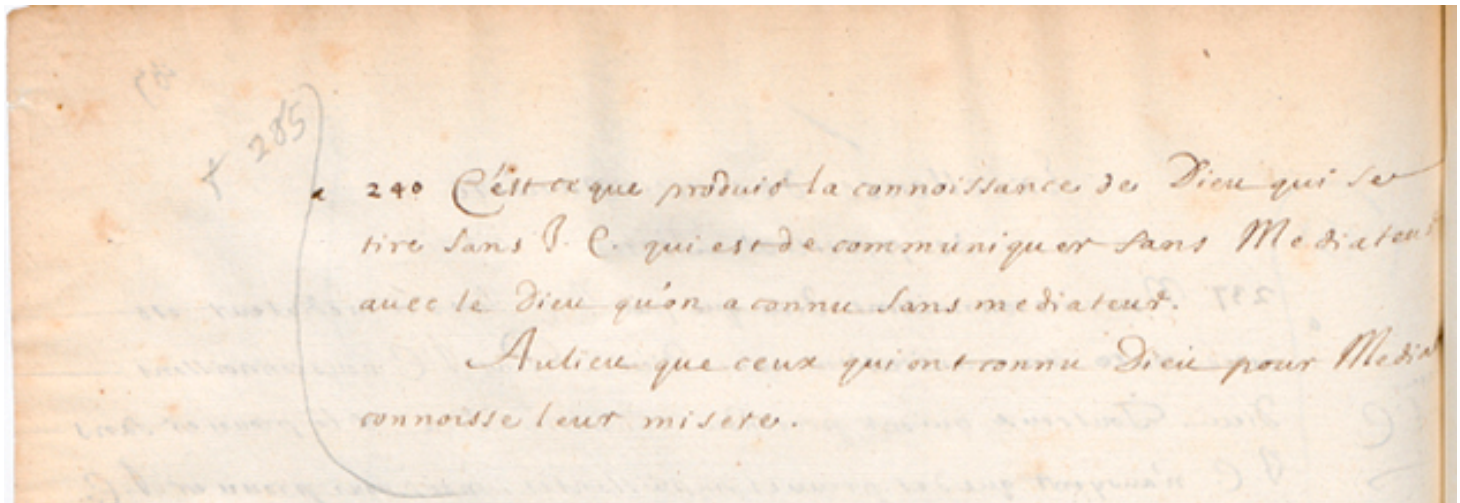 285
240 C'est ce que produit la connoissance de Dieu qui se
tire sans J. C. qui est de communiquer sans Mediateur
avec le Dieu qu'on a connu sans mediateur.
Au lieu que ceux qui ont connu Dieu pour Media
connoisse leur misere.